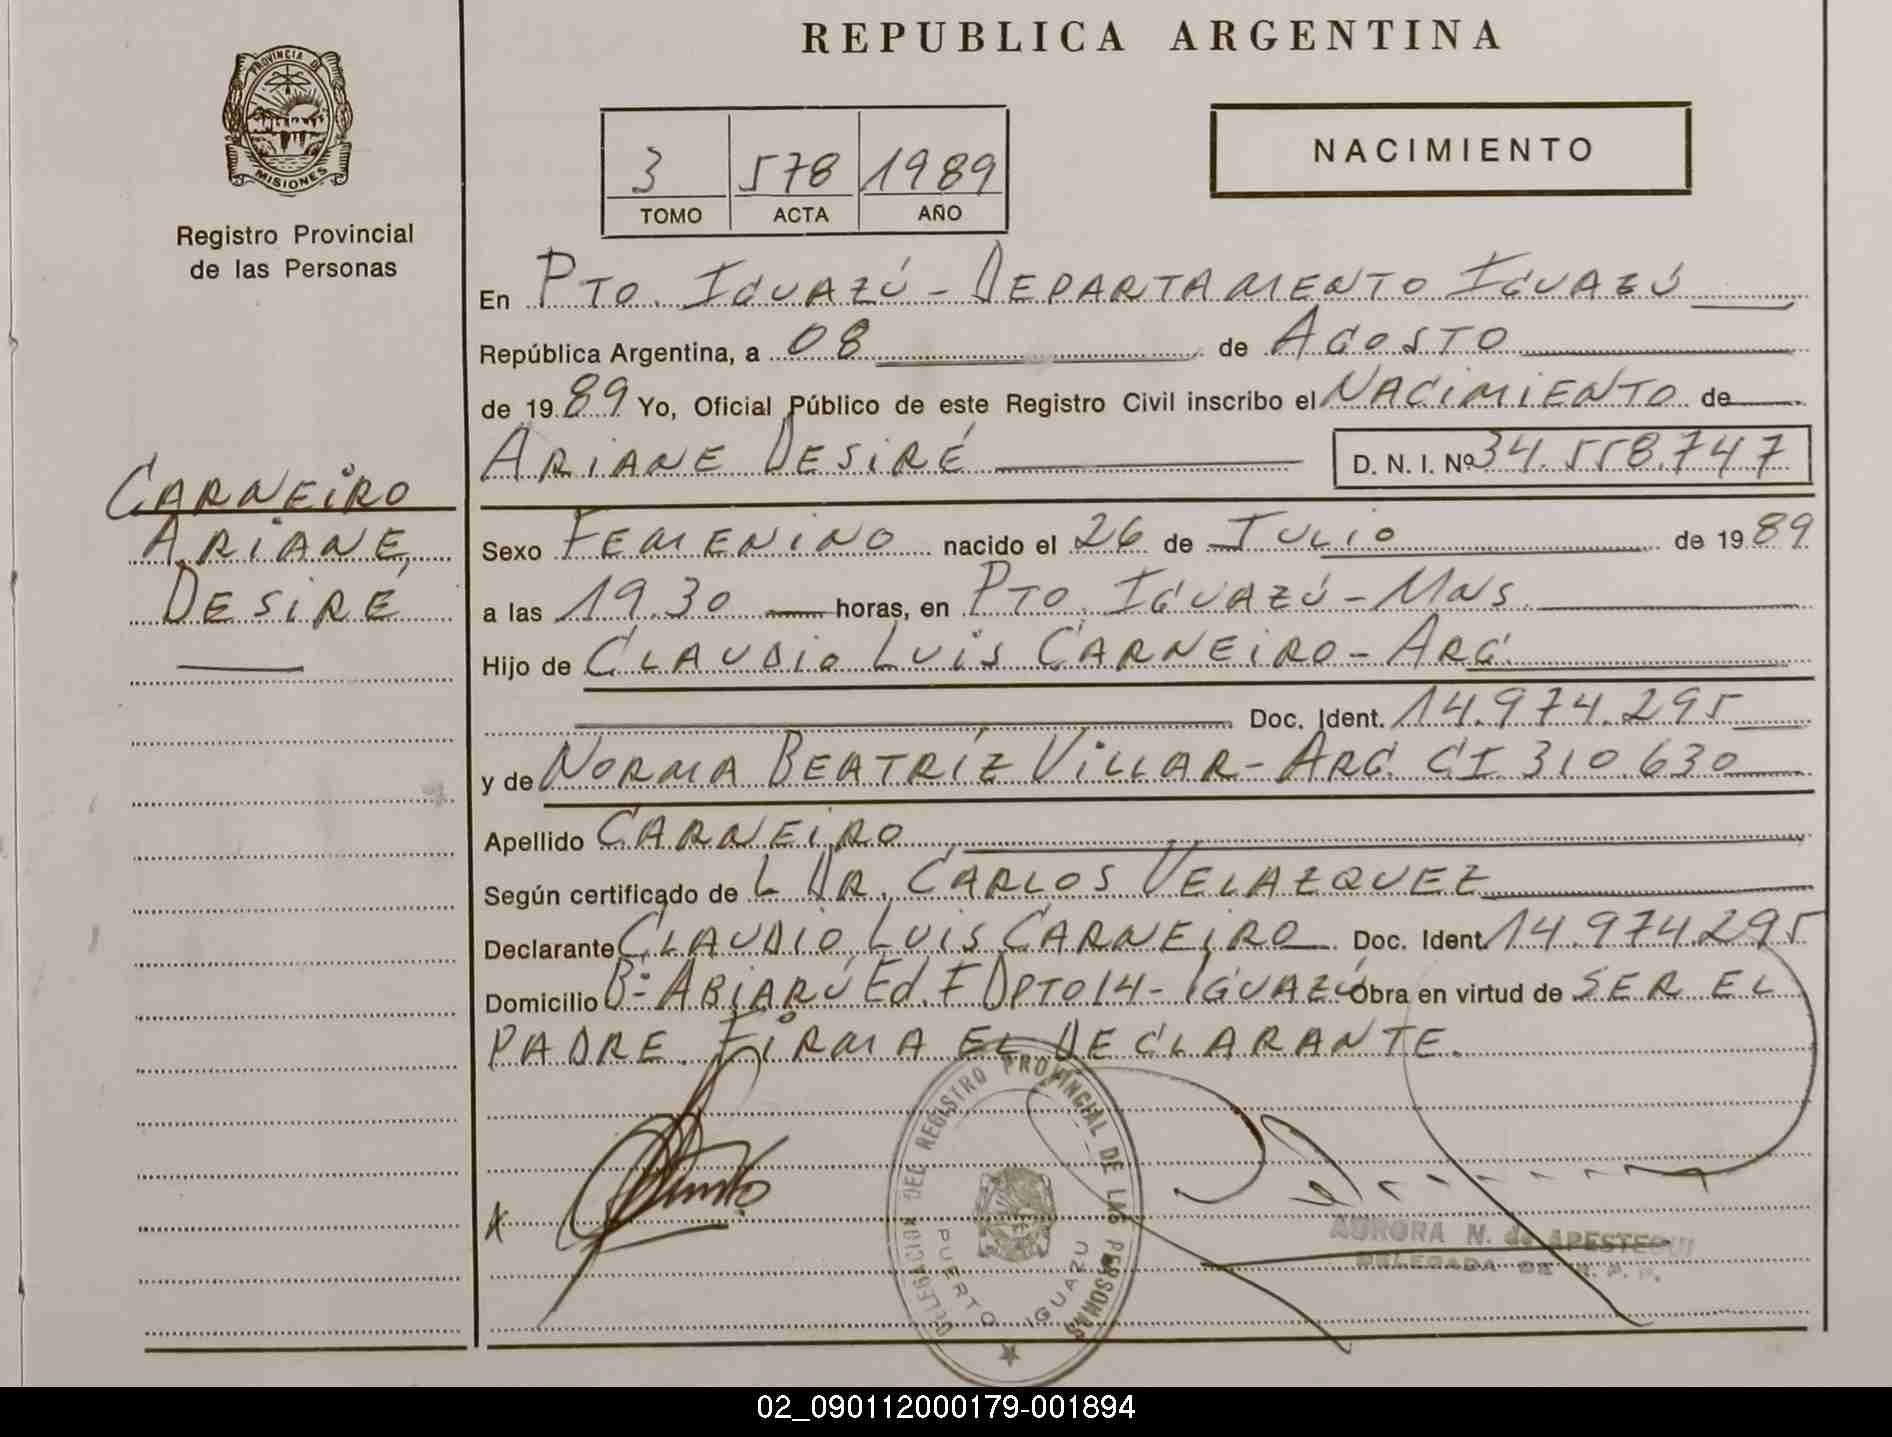 REPUBLICA ARGENTINA
PROVINCIA DE
MISIONES
Registro Provincial
de las Personas
3 578 1989
TOMO ACTA AÑO
NACIMIENTO
En PTO. IGUAZÚ - DEPARTAMENTO IGUAZÚ
República Argentina, a 08 de AGOSTO
de 1989 Yo, Oficial Público de este Registro Civil inscribo el NACIMIENTO de
ARIANE DESIRÉ D. N. I. Nº 34.558.747
CARNEIRO
ARIANE,
DESIRÉ
Sexo FEMENINO nacido el 26 de JULIO de 1989
a las 19.30 horas, en PTO. IGUAZÚ - MNS.
Hijo de CLAUDIO LUIS CARNEIRO - ARG.
Doc. Ident. 14.974.295
y de NORMA BEATRÍZ VILLAR - ARG. CI 310.630
Apellido CARNEIRO
Según certificado de L DR. CARLOS VELAZQUEZ
Declarante CLAUDIO LUIS CARNEIRO Doc. Ident. 14.974.295
Domicilio Bº ABIARÚ Ed. F DPTO 14 - IGUAZÚ Obra en virtud de SER EL
PADRE. FIRMA EL DECLARANTE.
X
DELEGACION DEL REGISTRO PROVINCIAL DE LAS PERSONAS
PUERTO IGUAZU
AURORA N. de APESTEGUI
DELEGADA DE R. P. P.
02_090112000179-001894